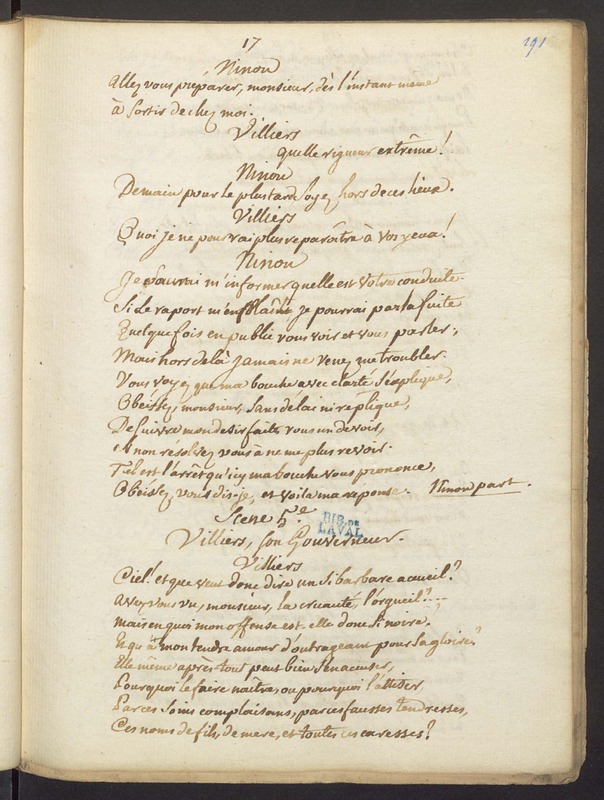 17
291
Ninon
Allez vous preparer, monsieur, dès l'instant meme
à sortir de chez moi.
Villiers
quelle rigueur extrême!
Ninon
Demain pour le plus tard soyez hors de ces lieux.
Villiers
Quoi je ne pourrai plus reparoître à vos yeux!
Ninon
Je saurai m'informer quelle est votre conduite
Si le raport m'en plaît, je pourrai par la suite
Quelque fois en public vous voir et vous parler;
Mais hors de là jamais ne venez me troubler.
Vous voyez que ma bouche avec clarté s'explique,
Obeissez, monsieur, sans délai ni réplique,
De suivre mon desir faites vous un devoir,
et non résolvez vous à ne me plus revoir.
Tel est l'arrêt qu'icy ma bouche vous prononce,
Obeissez, vous dis-je, et voila ma réponse. Ninon part.
Scene 5.e
BIB. DE
LAVAL
Villiers, son Gouverneur.
Villiers
Ciel! et que veut donc dire un si barbare accueil?
Avez vous vu, monsieur, la cruauté, l'orgueil?
mais en quoi mon offense est-elle donc si noire,
Et qu'a mon tendre amour d'outrageant pour sa gloire?
Elle même après tout peut bien s'en accuser,
Pourquoi le faire naître, ou pourquoi l'attiser,
Par ces soins complaisans, par ces fausses tendresses,
Ces noms de fils, de mere, et toutes ces caresses?